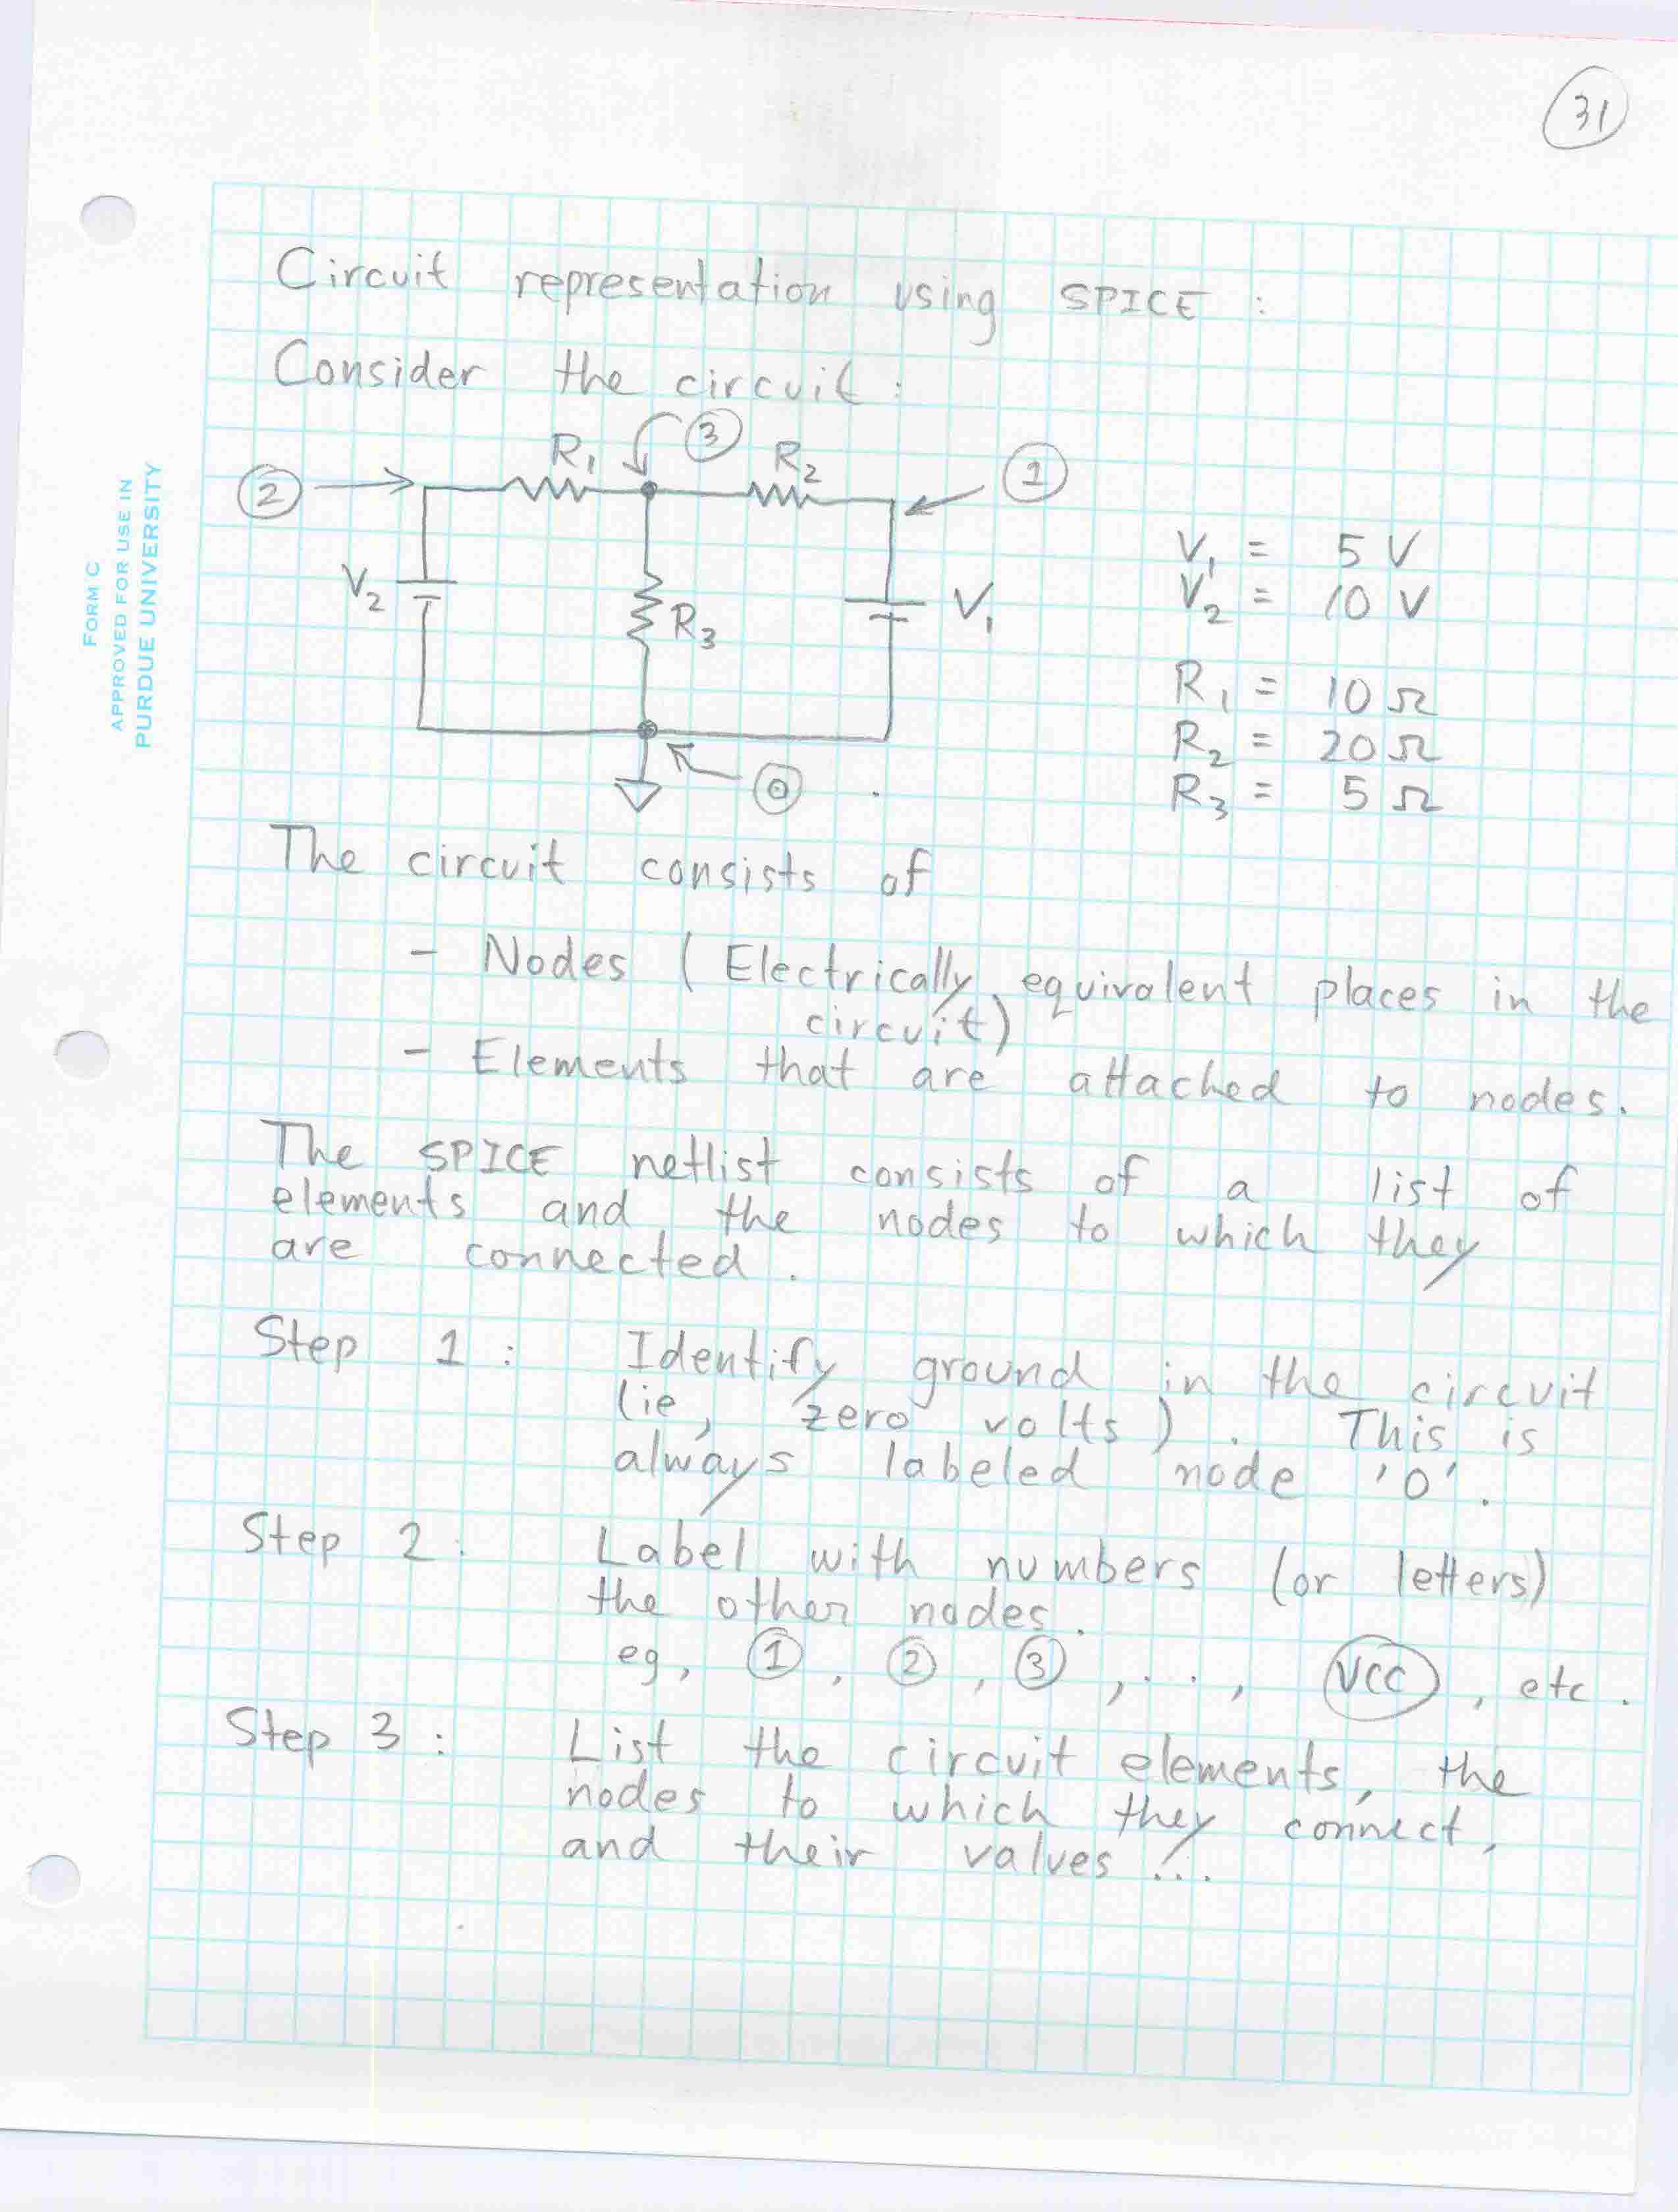 31
FORM C
APPROVED FOR USE IN
PURDUE UNIVERSITY
Circuit representation using SPICE :
Consider the circuit :
R1
3
R2
2
1
V2
R3
V1
0
V1 = 5 V
V2 = 10 V
R1 = 10 Ω
R2 = 20 Ω
R3 = 5 Ω
The circuit consists of
- Nodes ( Electrically equivalent places in the
circuit)
- Elements that are attached to nodes.
The SPICE netlist consists of a list of
elements and the nodes to which they
are connected .
Step 1 : Identify ground in the circuit
(ie, zero volts) . This is
always labeled node '0'.
Step 2 : Label with numbers (or letters)
the other nodes .
eg, 1 , 2 , 3 , . . , VCC , etc .
Step 3 : List the circuit elements, the
nodes to which they connect,
and their values ...